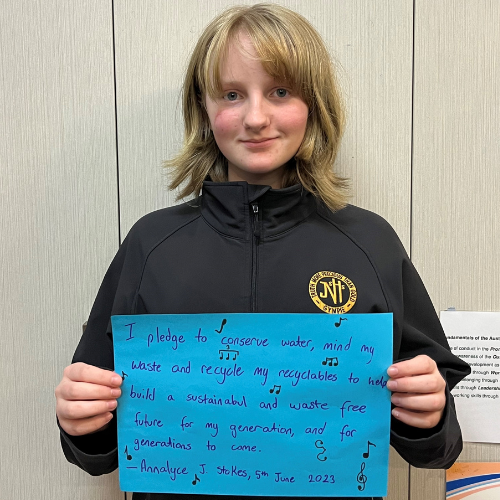 I pledge to conserve water, mind my
waste and recycle my recyclables to help
build a sustainabul and waste free
future for my generation, and for
generations to come.
— Annalyce J. Stokes, 5th June 2023
JNHS
GYMPIE
ndamentals of the Aust
of conduct in the
awareness of the
development as
through
belonging through
through Leadership
working skills through